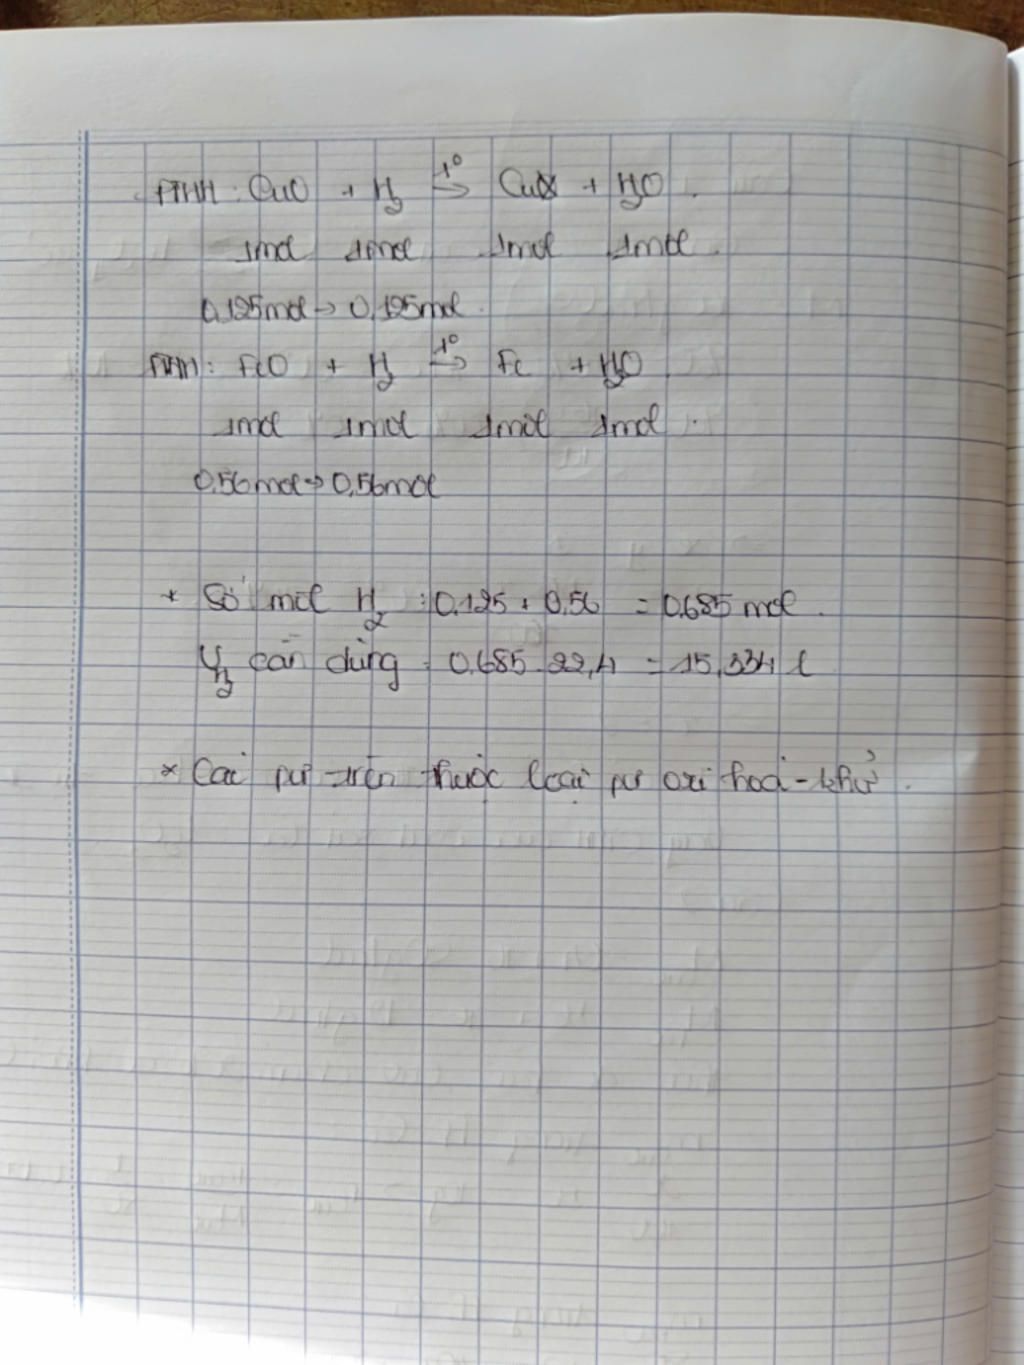 PTHH: CuO + H₂ t°→ Cu + H₂O.
1mol 1mol 1mol 1mol.
0,125mol → 0,125mol.
PTHH: FeO + H₂ t°→ Fe + H₂O.
1mol 1mol 1mol 1mol.
0,56mol → 0,56mol
* Số mol H₂ : 0,125 + 0,56 = 0,685 mol.
V H₂ cần dùng : 0,685 . 22,4 = 15,334 l
* Cai pư trên thuộc loại pư oxi hoá - khử.